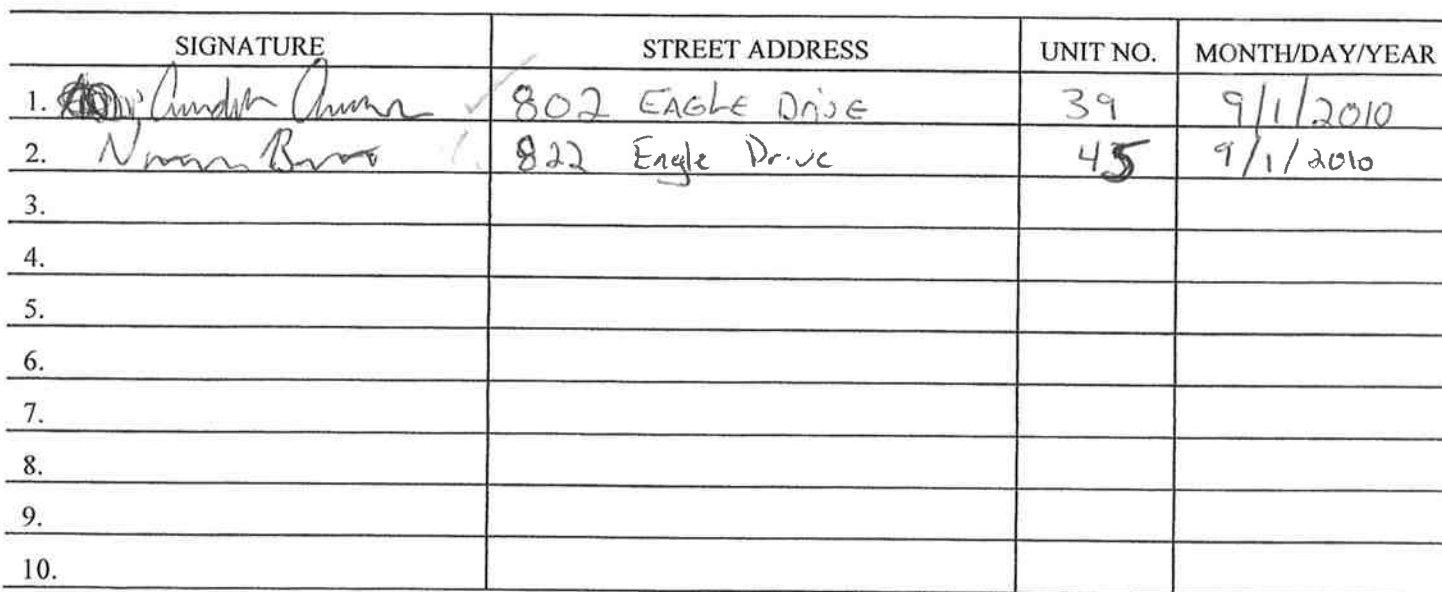 SIGNATURE STREET ADDRESS UNIT NO. MONTH/DAY/YEAR
1. 802 EAGLE Drive 39 9/1/2010
2. 822 Eagle Drive 45 9/1/2010
3.
4.
5.
6.
7.
8.
9.
10.